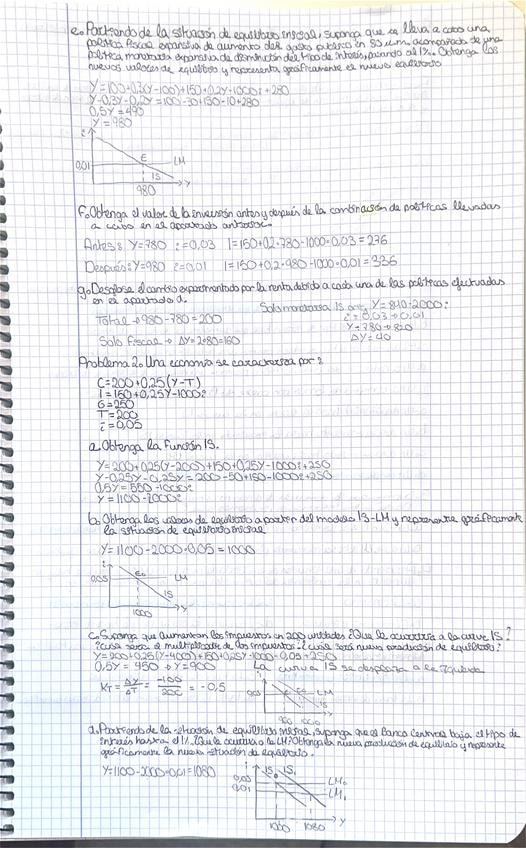 e. Partiendo de la situación de equilibrio inicial, suponga que se lleva a cabo una
política fiscal expansiva de aumento del gasto público en 80 u.m, acompañada de una
política monetaria expansiva de disminución del tipo de interés, pasando al 1%. Obtenga los
nuevos valores de equilibrio y representa gráficamente el nuevo equilibrio
Y=100+0,3(Y-100)+150+0,2Y-1000i+280
Y-0,3Y-0,2Y=100-30+150-10+280
0,5Y=490
Y=980
i
0,01
E
LM
IS
Y
980
f. Obtenga el valor de la inversión antes y después de la combinación de políticas llevadas
a cabo en el apartado anterior.
Antes: Y=780 i=0,03 I=150+0,2·780-1000·0,03=276
Después: Y=980 i=0,01 I=150+0,2·980-1000·0,01=336
g. Desglose el cambio experimentado por la renta debido a cada una de las políticas efectuadas
en el apartado d.
Total → 980-780=200
Solo fiscal → ΔY=2·80=160
Solo monetaria IS Y=840-2000i
i=0,03→0,01
Y=780→820
ΔY=40
Problema 2. Una economía se caracteriza por:
C=200+0,25(Y-T)
I=150+0,25Y-1000i
G=250
T=200
i=0,05
a. Obtenga la función IS.
Y=200+0,25(Y-200)+150+0,25Y-1000i+250
Y-0,25Y-0,25Y=200-50+150-1000i+250
0,5Y=550-1000i
Y=1100-2000i
b. Obtenga los valores de equilibrio a partir del modelo IS-LM y represente gráficamente
la situación de equilibrio inicial
Y=1100-2000·0,05=1000
i
0,05
E₀
LM
IS
Y
1000
c. Suponga que aumentan los impuestos en 200 unidades ¿Qué le ocurriría a la curve IS?
¿cual sería el multiplicador de los impuestos? ¿cual será nueva producción de equilibrio?
Y=200+0,25(Y-400)+150+0,25Y-1000·0,05+250
0,5Y=450→Y=900
La curva IS se desplaza a la izquierda
K_T=ΔY/ΔT=-100/200=-0,5
i
0,05
LM
IS
Y
900 1000
d. Partiendo de la situación de equilibrio inicial, suponga que el Banco Central baja el tipo de
interés hasta el 1%. ¿Qué le ocurre a la LM? Obtenga la nueva producción de equilibrio y represente
gráficamente la nueva situación de equilibrio.
Y=1100-2000·0,01=1080
i
IS₀ IS₁
0,05
LM₀
0,01
LM₁
Y
1000 1080